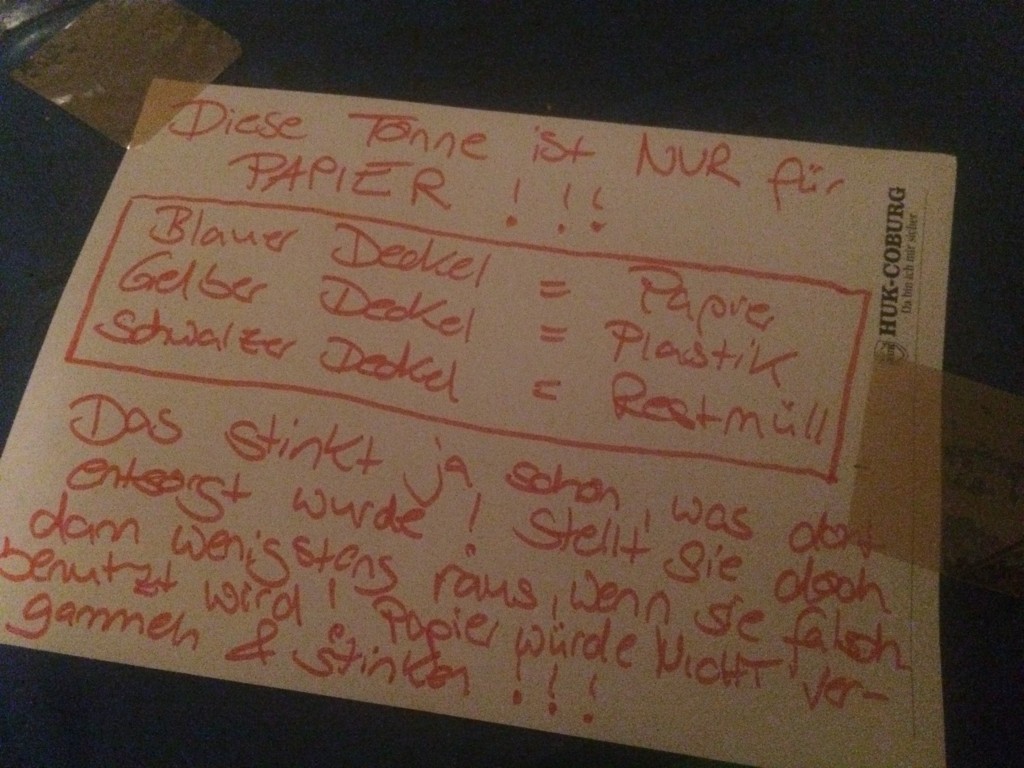 HUK-COBURG
Da bin ich mir sicher.
Diese Tonne ist NUR für
PAPIER !!!
Blauer Deckel = Papire
Gelber Deckel = Plastik
Schwarzer Deckel = Restmüll
Das stinkt ja schon, was dort
entsorgt wurde! Stellt sie doch
dann wenigstens raus, wenn sie falsch
benutzt wird! Papier würde nicht ver-
gammeln & stinken !!!